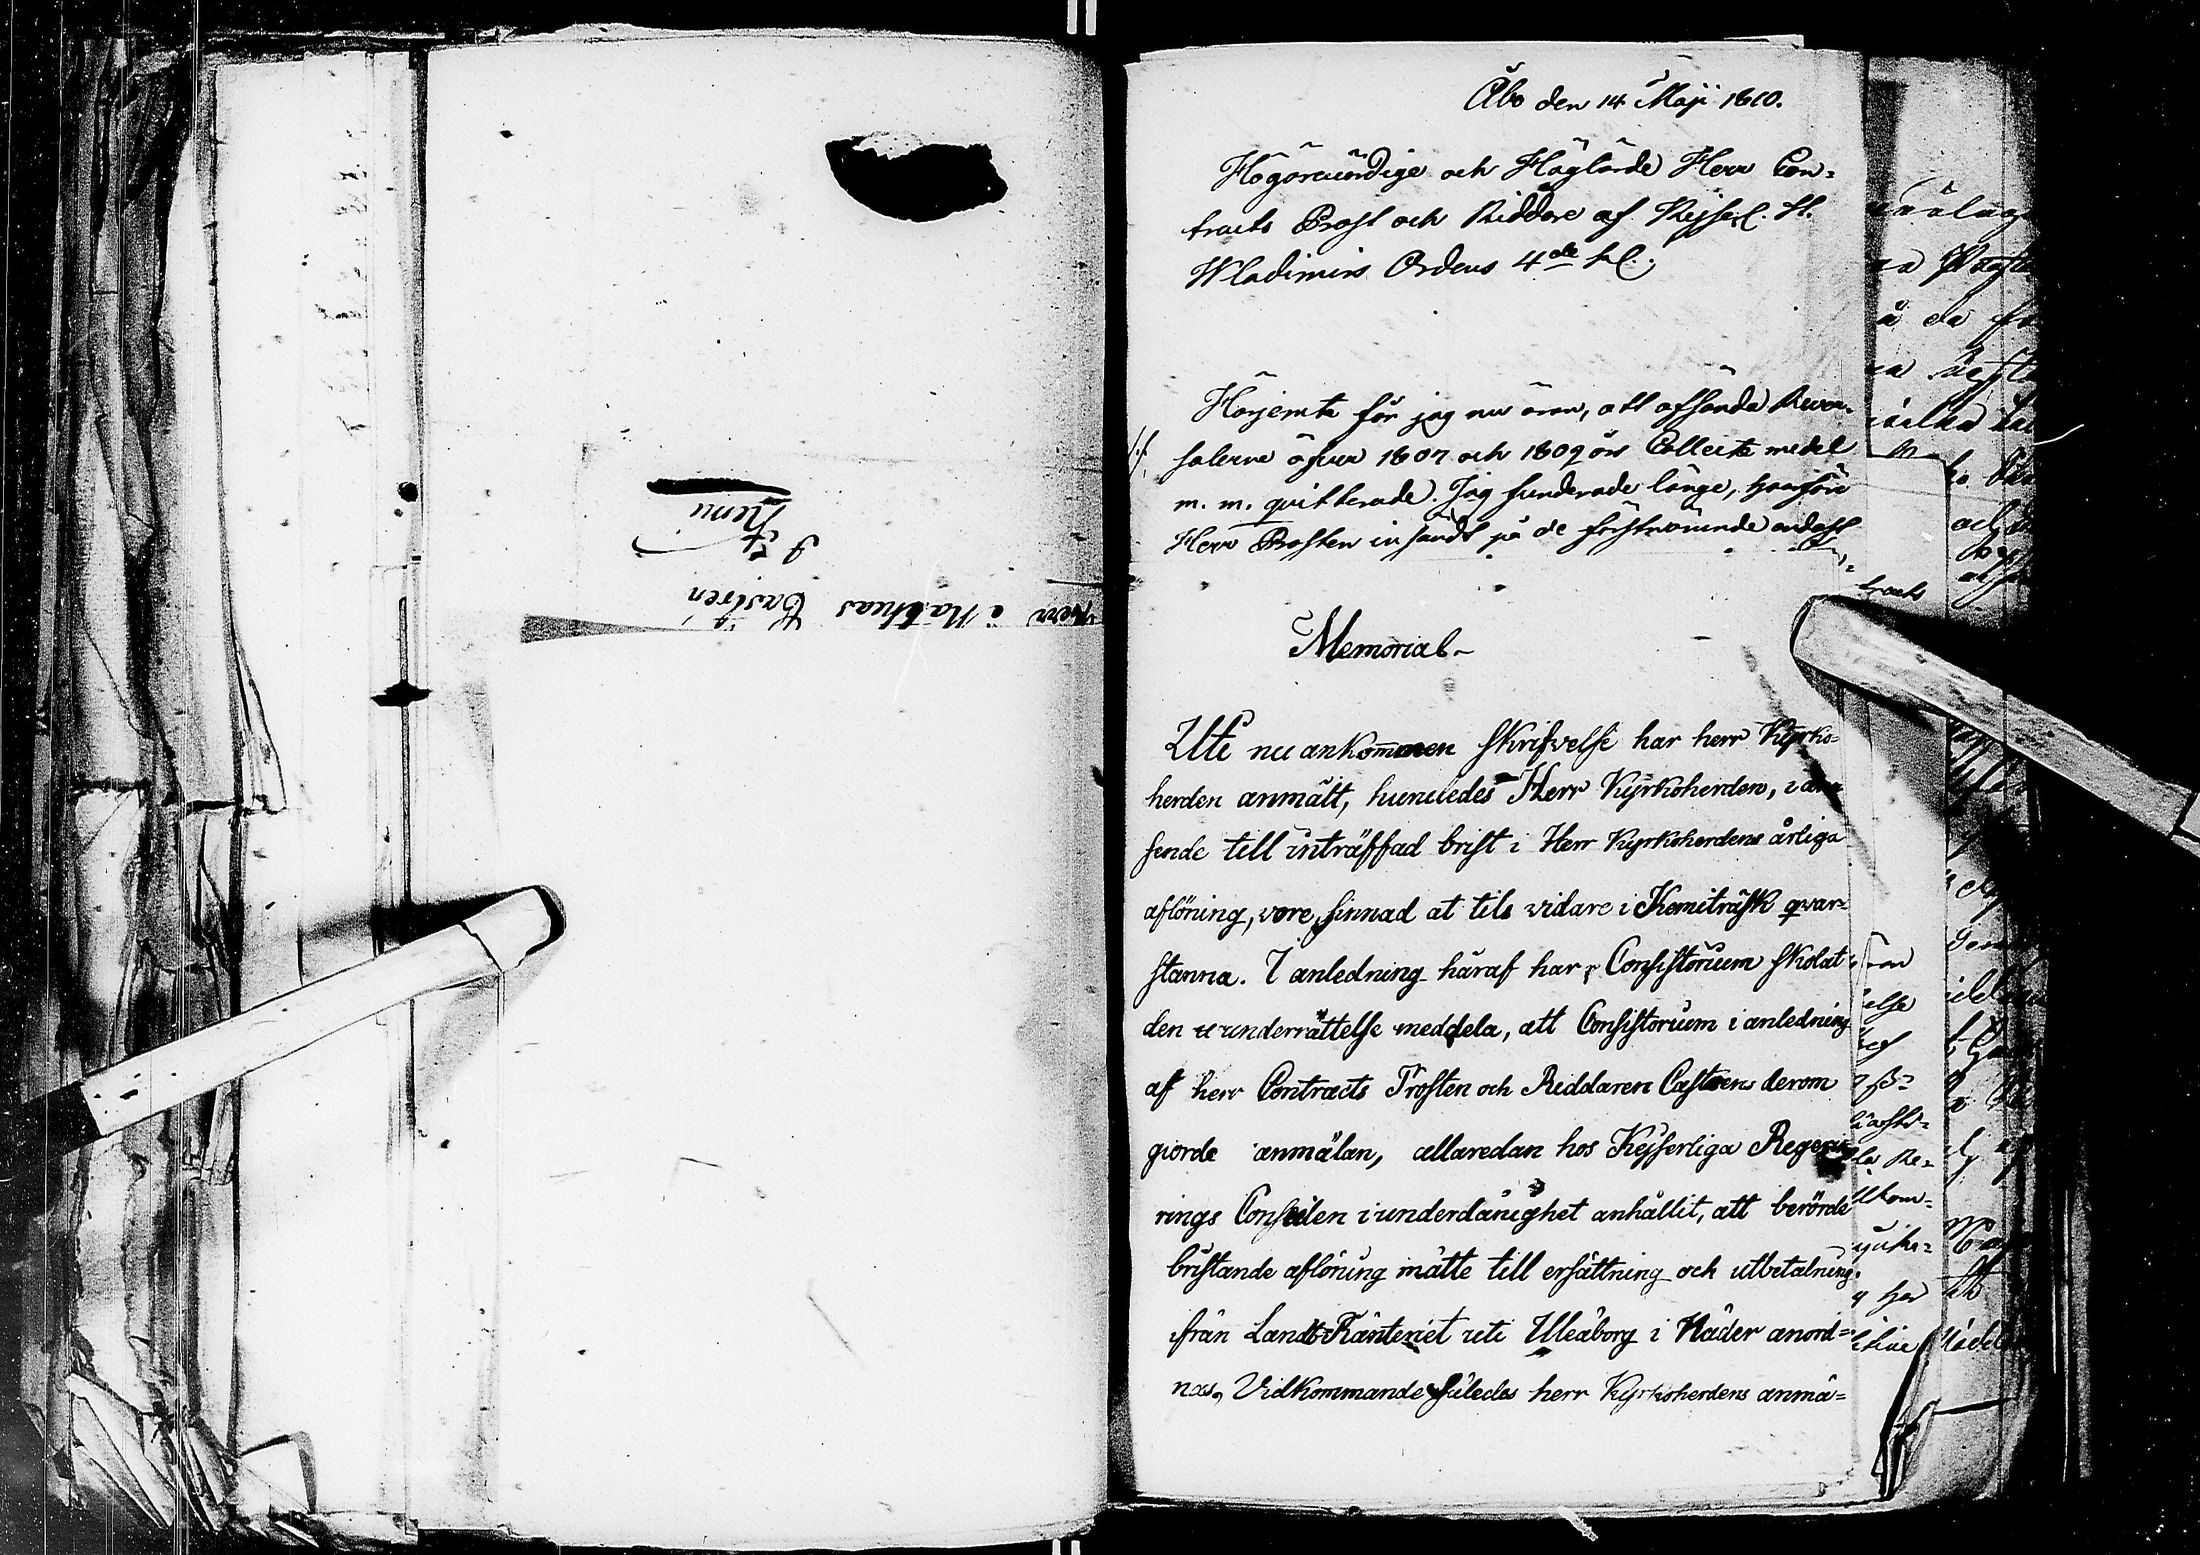 Herr Matthias Castrén
Kemi
Åbo den 14 Maji 1810.
Högärevördige och Höglärde Herr Con-
tracts Prost och Riddare af Kejserl. St.
Wladimirs Ordens 4de kl.
Härjemte får jag nu äran, att afsända Rever-
salerne öfver 1807 och 1809 års Collecte medel
m. m. quitterade. Jag funderade länge, hvarföre
Herr Prosten insändt på de förstnämnde endast
Memorial-
Uti nu ankommen skrifvelse har herr Kyrko-
herden anmält, huruledes Herr Kyrkoherden, i anse
seende till inträffad brist i Herr Kyrkoherdens årliga
aflöning, vore sinnad at tils vidare i Kemiträsk qvar-
stanna. I anledning häraf har Consistorium skolat
den underrättelse meddela, att Consistorium i anledning
af herr Contracts Prosten och Riddaren Castrens derom
giorde anmälan, allaredan hos Kejserliga Rege
rings Conseilen i underdånighet anhållit, att berörde
bristande aflöning måtte till ersättning och utbetalning
ifrån Landt Ränteriet uti Uleåborg i Nåder anord-
nas, Vidkommande således herr Kyrkoherdens anmä-